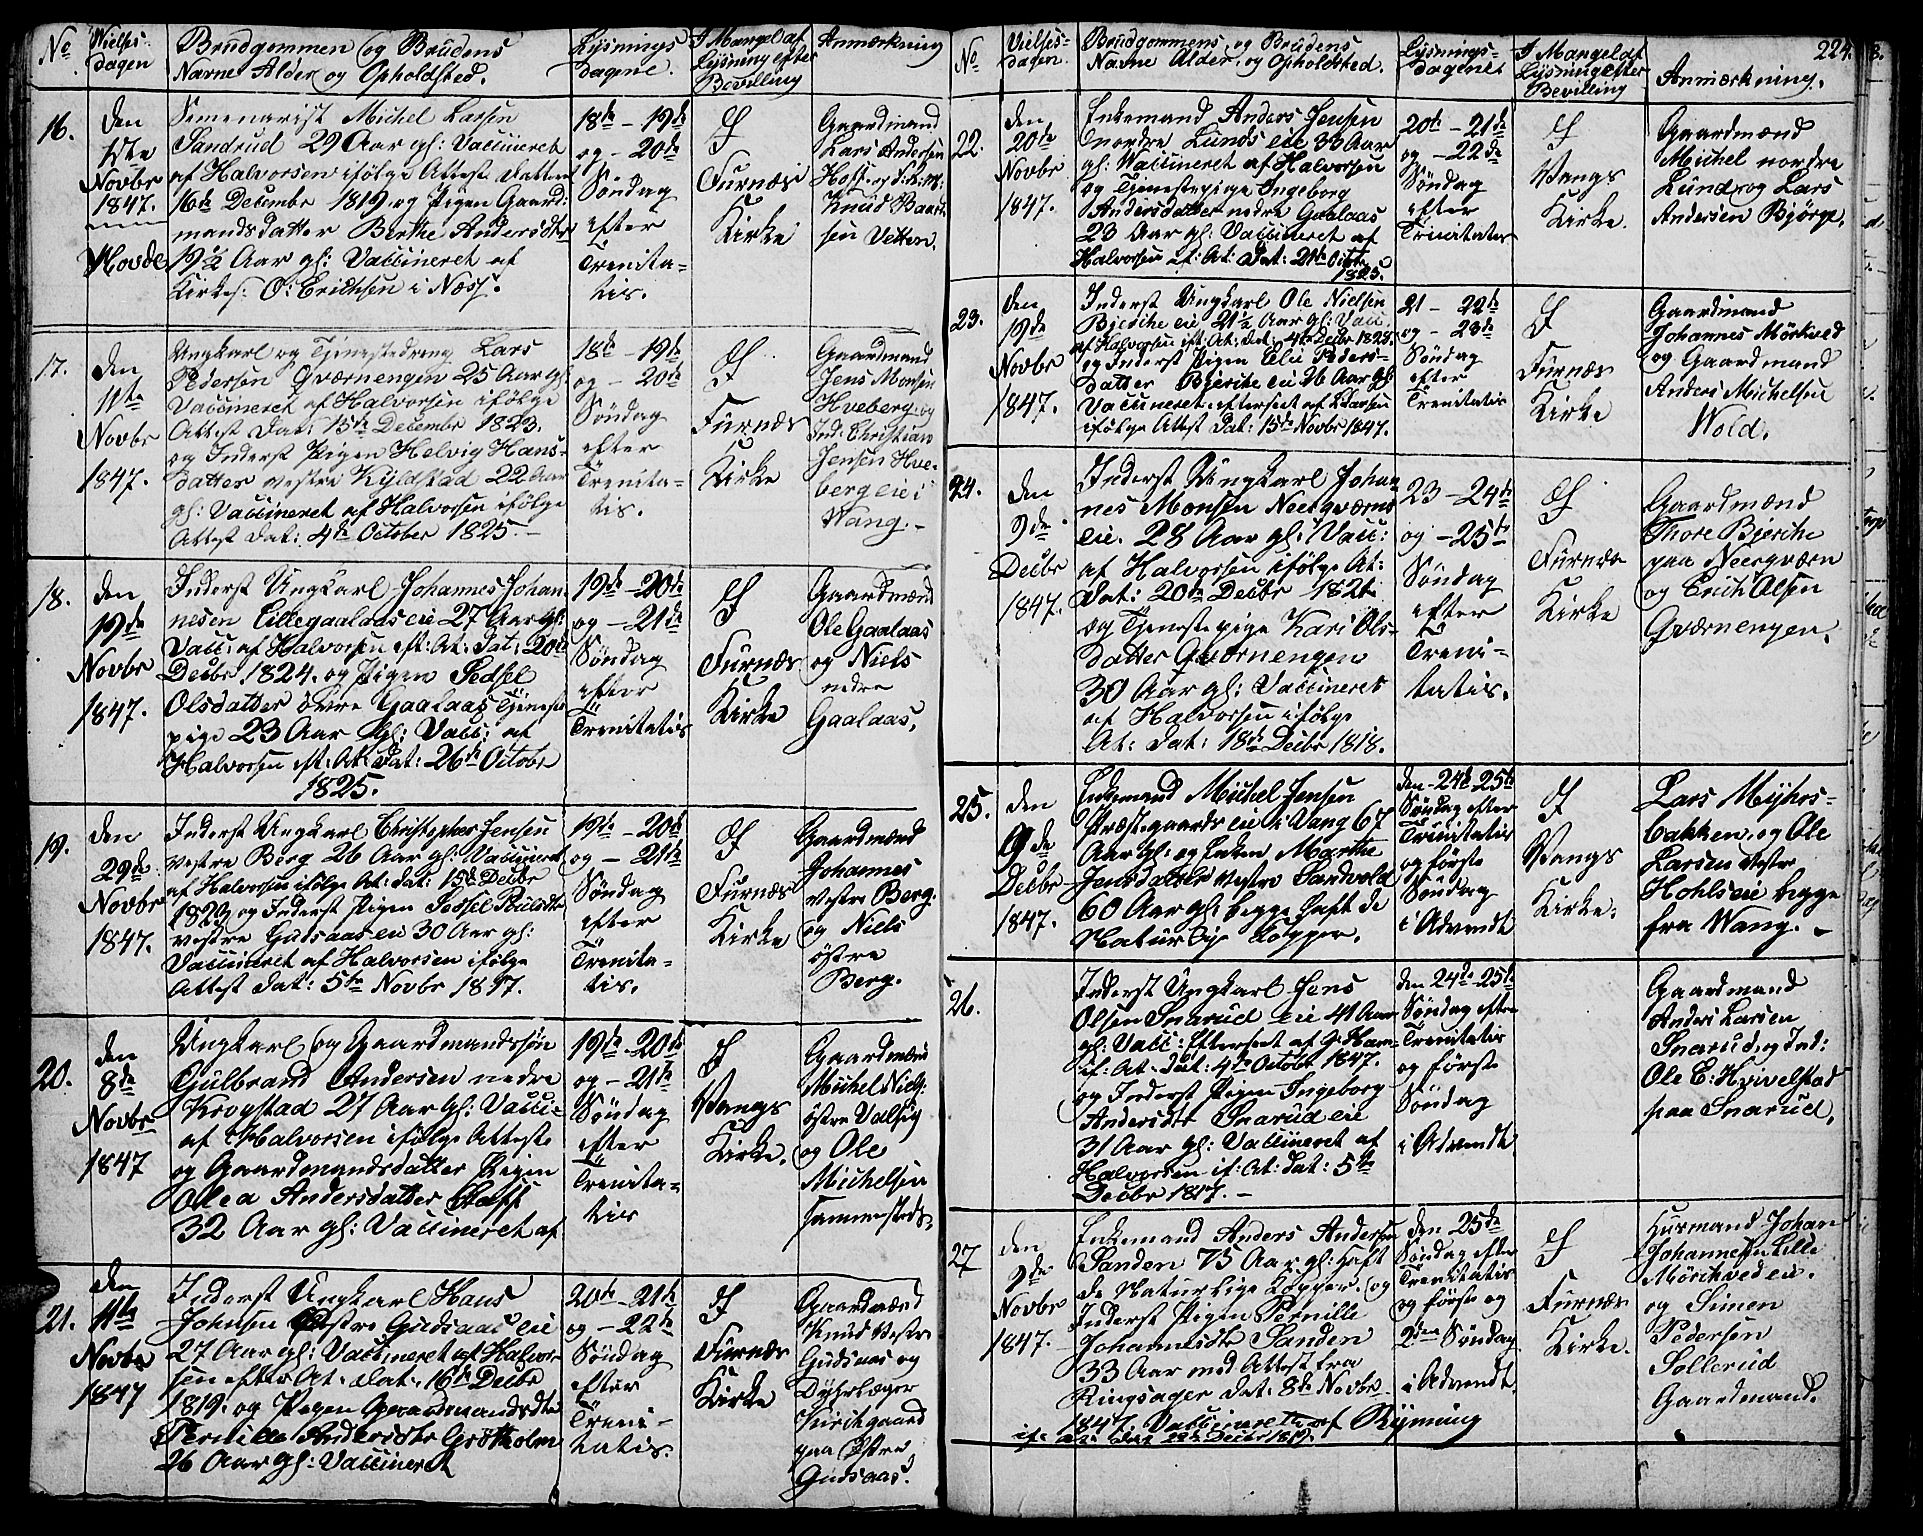 No
Vielses-
dagen
Brudgommen og Brudens
Navne Alder og Opholdsted.
Lysnings
Dagene.
I Mangel af
Lysning efter
Bevilling
Anmærkning
16.
den
1ste
Novbr
1847.
Hovde
Semenarist Michel Larsen
Sandrud 29 Aar gl: Vaccineret
af Halvorsen ifølge Attest Datteret
16de Decembr 1819 og Pigen Gaard:
mandsdatter Berthe Andersdtr
19½ Aar gl: Vaccineret af
Kirkes: O: Erichsen i Næss.
18de – 19de
og – 20de
Søndag
efter
Trenita=
tis.
I
Furnæs
Kirke
Gaardmænd
Lars Andersen
Knud Baard
sen Vetten.
17.
den
11te
Novbr
1847.
Ungkarl og Tjenestedreng Lars
Pedersen Qværnengen 25 Aar gl:
Vaccineret af Halvorsen ifølge
Attest Dat: 15de Decembr 1823.
og Inderst Pigen Helvig Hans-
datter vestre Kyldstad 22 Aar
gl: Vaccineret af Halvorsen ifølge
Attest dat: 4de October 1825.–
18de – 19de
og – 20de
Søndag
efter
Trenita=
tis.
I
Furnæs
Kirke
Gaardmand
Jens Monsen
Hveberg og
Ind: Christian
Jensen Hve-
berg eie i
Vang.–
18.
den
19de
Novbr
1847.
Inderst Ungkarl Johannes Johan
nesen Lillegaalaas eie 27 Aar gl:
Vacc: af Halvorsen eft: At: dat: 20de
Decbr 1824. og Pigen Sedsel
Olsdatter øvre Gaalaas Tjeneste
pige 23 Aar gl: Vacc: af
Halvorsen eft: At: dat: 26de Octobr
1825.
19de – 20de
og – 21de
Søndag
efter
Trenitatis
I
Furnæs
Kirke
Gaardmænd
Ole Gaalaas
og Niels
nedre
Gaalaas.
19.
den
29de
Novbr
1847.
Inderst Ungkarl Christopher Jensen
vestre Berg 26 Aar gl: Vaccineret
af Halvorsen ifølge At: dat: 15de Decbr
1823 og Inderst Pigen Sedsel Poulsdtr
vestre Gudsaas eie 30 Aar gl:
Vaccineret af Halvorsen ifølge
Attest dat: 5te Novbr 1817.
19de – 20de
og – 21de
Søndag
efter
Trenita=
tis.
I
Furnæs
Kirke
Gaardmænd
Johannes
vestre Berg.
og Niels
østre
Berg.
20.
den
8de
Novbr
1847
Ungkarl og Gaardmandssøn
Gulbrand Andersen nedre
Krogstad 27 Aar gl: Vacci=
af Halvorsen ifølge Attest
og Gaardmandsdatter Pigen
Olea Andersdatter
32 Aar gl: Vaccineret af
19de – 20de
og – 21de
Søndag
efter
Trenita=
tis
I
Vangs
Kirke.
Gaardmænd
Michel Niels:
østre Valsig
og Ole
Michelsen
sammesteds.
21.
den
11te
Novbr
1847
Inderst Ungkarl Hans
Johnsen Østre Gudsaas eie
27 Aar gl: Vaccineret af Halvor
sen efter At: dat: 16de Decbr
1819. og Pigen Gaardmandsdtr
Pernille Andersdtr Grøtholm
26 Aar gl: Vaccineret
20de – 21de
og – 22de
Søndag
efter
Treni–
tatis.
I
Furnæs
Kirke
Gaardmænd
Knud Vestre
Gudsaas og
Dyhrlæger
Kirkgaard
paa Østre
Gudsaas.
224.
No
Vielses-
dagen.
Brudgommens og Brudens
Navne Alder og Opholdsted.
Lysnings-
Dagene
I Mangel af
Lysning efter
Bevilling
Anmærkning.
22.
den
20de
Novbr
1847.
Enkemand Anders Jensen
nordre Lunds eie 33 Aar
gl: Vaccineret af Halvorsen
og Tjenestepige Ingeborg
Andersdatter nedre Gaalaas
23 Aar gl: Vaccineret af
Halvorsen ef: At: Dat: 21de Octbr
1825.
20de – 21de
og – 22de
Søndag
efter
Trinitatis
I
Vangs
Kirke.
Gaardmænd
Michel nordre
Lund og Lars
Andersen Bjørge.
23.
den
19de
Novbr
1847.
Inderst Ungkarl Ole Nielsen
Bjerke eie 21½ Aar gl: Vacc
af Halvorsen eft: At: dat: 4de Decbr 1825.
og Inderst Pigen Elie Peders-
datter Bjerke eie 26 Aar gl:
Vaccineret efterseet af Klausen
ifølge Attest dat: 15de Novbr 1847.
21 – 22de
og – 23de
Søndag
efter
Trenitatis
I
Furnæs
Kirke
Gaardmænd
Johannes Mörkved
og Gaardmand
Anders Michelsen
Wold.
24.
den
9de
Decbr
1847.
Inderst Ungkarl Johan
nes Monsen Neerqværns
eie. 28 Aar gl: Vacc:
af Halvorsen ifølge At:
dat: 20de Decbr 1821
og Tjenestepige Kari Ols-
datter Qværnengen
30 Aar gl: Vaccineret
af Halvorsen ifølge
At: dat: 18de Decbr 1818.
23 – 24de
og – 25de
Søndag
efter
Treni–
tatis.
I
Furnæs
Kirke
Gaardmænd
Thore Bjerke
paa Neerqværn
og Erich Olsen
Qværnengen.
25.
den
9de
Decbr
1847.
Enkemand Michel Jensen
Præstegaards eie i Vang 67
Aar gl: og Enken Marthe
Jensdatter vestre Sandvold
60 Aar gl: begge haft de
Naturlige Kopper.
den 24de 25de
Søndag efter
Trenitatis
og første
Søndag
i Advendt
I
Vangs
Kirke.
Lars Myhrs-
bakken og Ole
Larsen Vestre
Hohls eie begge
fra Wang.–
26.
Inderst Ungkarl Jens
Olsen Snarud eie 41 Aar
gl: Vacc: Efterseet af G: Ham-
if: At: dat: 4de Octobr 1847.
og Inderst Pigen Ingeborg
Andersdtr Snarud eie
31 Aar gl: Vaccineret af
Halvorsen if: At: dat: 5te
Decbr 1817.–
den 24de 25de
Søndag efter
Trenitatis
og første
Søndag
i Advendt
Gaardmand
Anders Larsen
Snarud og Ind:
Ole E: Hvivelstad
paa Snarud.
27
den
9de
Novbr
1847.
Enkemand Anders Andersen
Sanden 75 Aar gl: haft
de Naturlige Kopper. og
Inderst Pigen Pernille
Johannesdtr Sanden
33 Aar med Attest fra
Ringsager dat: 8de Novbr
1847. Vaccineret af Ryming
if: At: dat 22de Decbr 1819.
den 25de
Søndag efter
Trenitatis
og første og
2den Søndag
i Advendt
I
Furnæs
Kirke.
Husmand Johan
Johannesen Lille
Mörkved eie.
og Simen
Pedersen
Sollerud
Gaardmand.